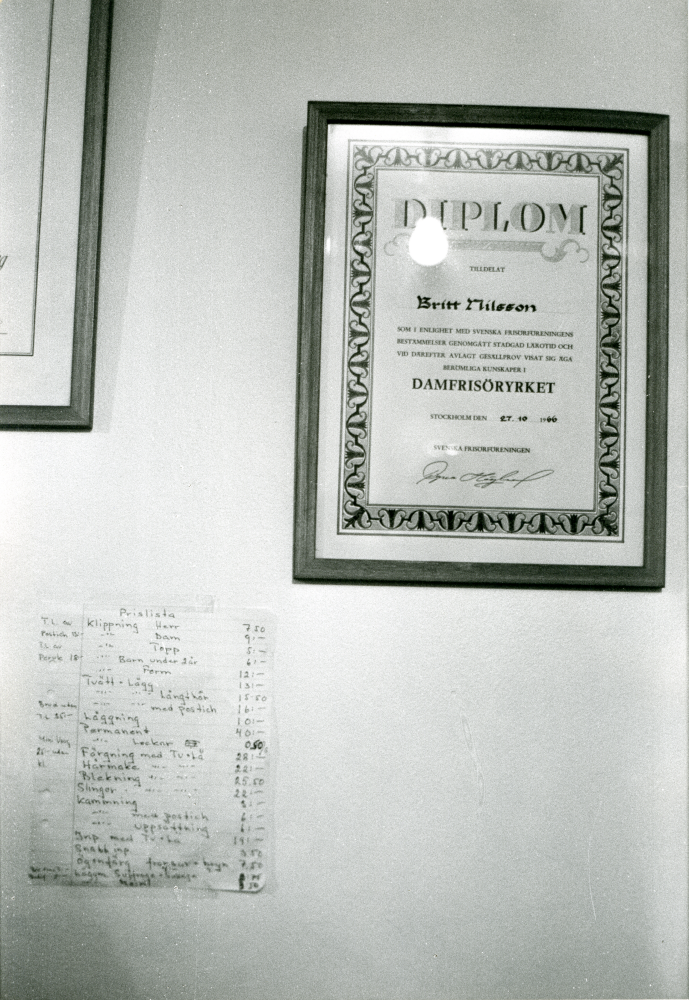 DIPLOM
TILLDELAT
Britt Nilsson
SOM I ENLIGHET MED SVENSKA FRISÖRFÖRENINGENS
BESTÄMMELSER GENOMGÅTT STADGAD LÄROTID OCH
VID DÄREFTER AVLAGT GESÄLLPROV VISAT SIG ÄGA
BERÖMLIGA KUNSKAPER I
DAMFRISÖRYRKET
STOCKHOLM DEN 27. 10 1966
SVENSKA FRISÖRFÖRENINGEN
Prislista
Klippning Herr 7.50
-"- Dam 9:-
-"- Topp 5:-
-"- Barn under 6:-
-"- Form 12:-
Tvätt + Lägg 13:-
-"- -"- Långthår 15.50
-"- -"- med postich 16:-
Läggning 10:-
Permanent 40:-
-"- Lockar 0.50
Färgning med Tv+Lä 28:-
Hårmake -"- -"- 22:-
Blekning -"- -"- 25.50
Slingor -"- -"- 22:-
Kammning
-"- med postich 6:-
-"- uppsättning 6:-
Inp. med Tv+Lä 19:-
Snabb inp.
Ögonfärg fransar + bryn 7.50